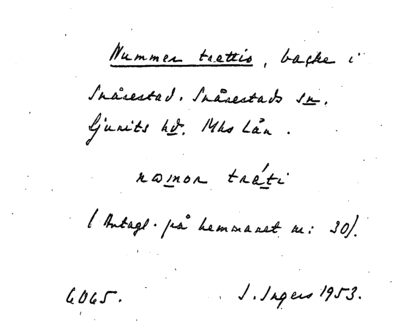 Nummer trettio, backe i
Snårestad. Snårestads sn.
Ljunits hd. Mhs Län.
nomor tráti
(Antagl. på hemmanet nr: 30).
6065. I. Ingers 1953.